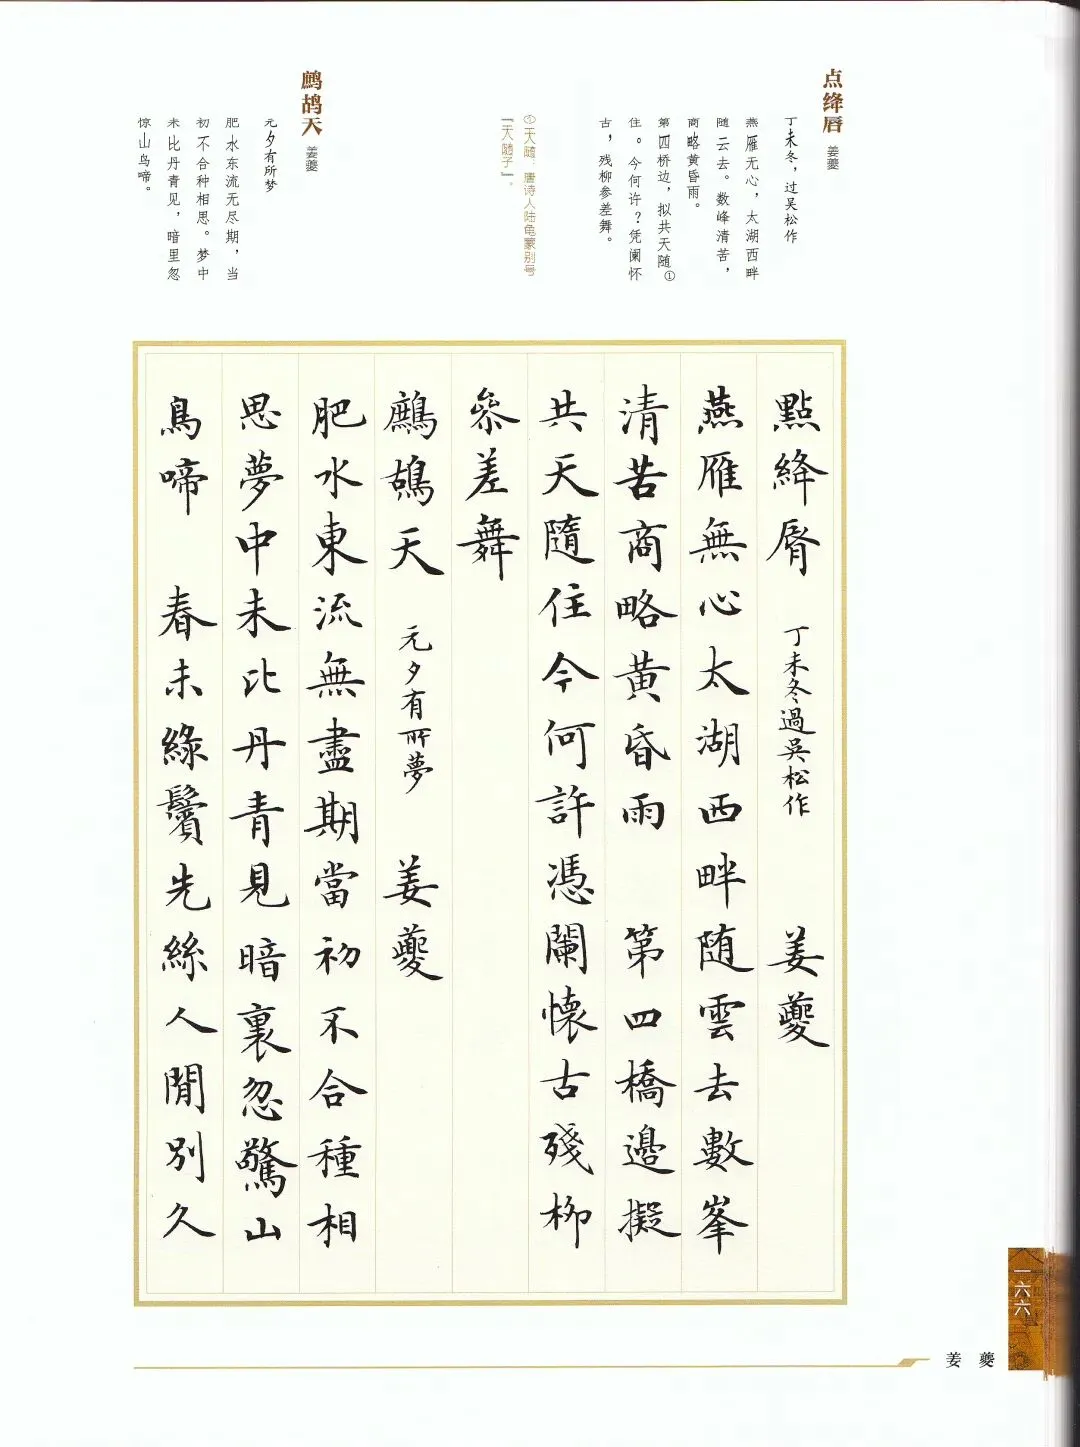 点绛唇 姜夔
丁未冬，过吴松作
燕雁无心，太湖西畔
随云去。数峰清苦，
商略黄昏雨。
第四桥边，拟共天随①
住。今何许？凭阑怀
古，残柳参差舞。
①天随：唐诗人陆龟蒙别号
「天随子」。
鹧鸪天 姜夔
元夕有所梦
肥水东流无尽期，当
初不合种相思。梦中
未比丹青见，暗里忽
惊山鸟啼。
點絳脣 丁未冬過吳松作 姜夔
燕雁無心太湖西畔随雲去數峯
清苦商略黄昏雨 第四橋邊擬
共天隨住今何許憑闌懷古殘柳
參差舞
鷓鴣天 元夕有所夢 姜夔
肥水東流無盡期當初不合種相
思夢中未比丹青見暗裏忽驚山
鳥啼 春未綠鬢先絲人間別久
一六六
姜夔